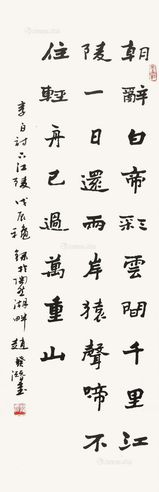 朝辭白帝彩雲間千里江
陵一日還兩岸猿聲啼不
住輕舟已過萬重山
李白詩下江陵戊辰 錄於南 湖畔趙